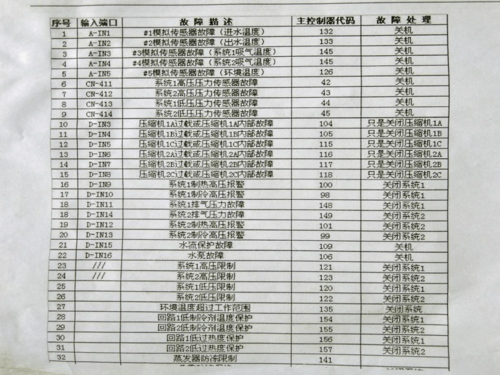 序号 输入端口 故障描述 主控制器代码 故障处理
1 A-IN1 #1模拟传感器故障（进水温度） 132 关机
2 A-IN2 #2模拟传感器故障（出水温度） 133 关机
3 A-IN3 #3模拟传感器故障（系统1吸气温度） 145 关机
4 A-IN4 #4模拟传感器故障（系统2吸气温度） 145 关机
5 A-IN5 #5模拟传感器故障（环境温度） 126 关机
6 CN-411 系统1高压压力传感器故障 42 关机
7 CN-412 系统2高压压力传感器故障 43 关机
8 CN-413 系统1低压压力传感器故障 44 关机
9 CN-414 系统2低压压力传感器故障 45 关机
10 D-IN3 压缩机1A过载或压缩机1A内部故障 104 只是关闭压缩机1A
11 D-IN4 压缩机1B过载或压缩机1B内部故障 105 只是关闭压缩机1B
12 D-IN5 压缩机1C过载或压缩机1C内部故障 115 只是关闭压缩机1C
13 D-IN6 压缩机2A过载或压缩机2A内部故障 116 只是关闭压缩机2A
14 D-IN7 压缩机2B过载或压缩机2B内部故障 117 只是关闭压缩机2B
15 D-IN8 压缩机2C过载或压缩机2C内部故障 118 只是关闭压缩机2C
16 D-IN9 系统1制热高压报警 100 关闭系统1
17 D-IN10 系统1制冷高压报警 98 关闭系统1
18 D-IN11 系统1排气压力故障 148 关闭系统1
19 D-IN11 系统2排气压力故障 149 关闭系统2
19 D-IN12 系统2制热高压报警 101 关闭系统2
20 D-IN13 系统2制冷高压报警 99 关闭系统2
21 D-IN15 水流保护故障 109 关机
22 D-IN16 水泵故障 106 关机
23 /// 系统1高压限制 121 关闭系统1
24 /// 系统2高压限制 123 关闭系统2
25 系统1低压限制 120 关闭系统1
26 系统2低压限制 122 关闭系统2
27 环境温度超过工作范围 135 关闭系统
28 回路1低制冷剂温度保护 154 关闭系统1
29 回路2低制冷剂温度保护 155 关闭系统2
30 回路1低过热度保护 156 关闭系统1
31 回路2低过热度保护 157 关闭系统2
32 蒸发器防冻限制 141